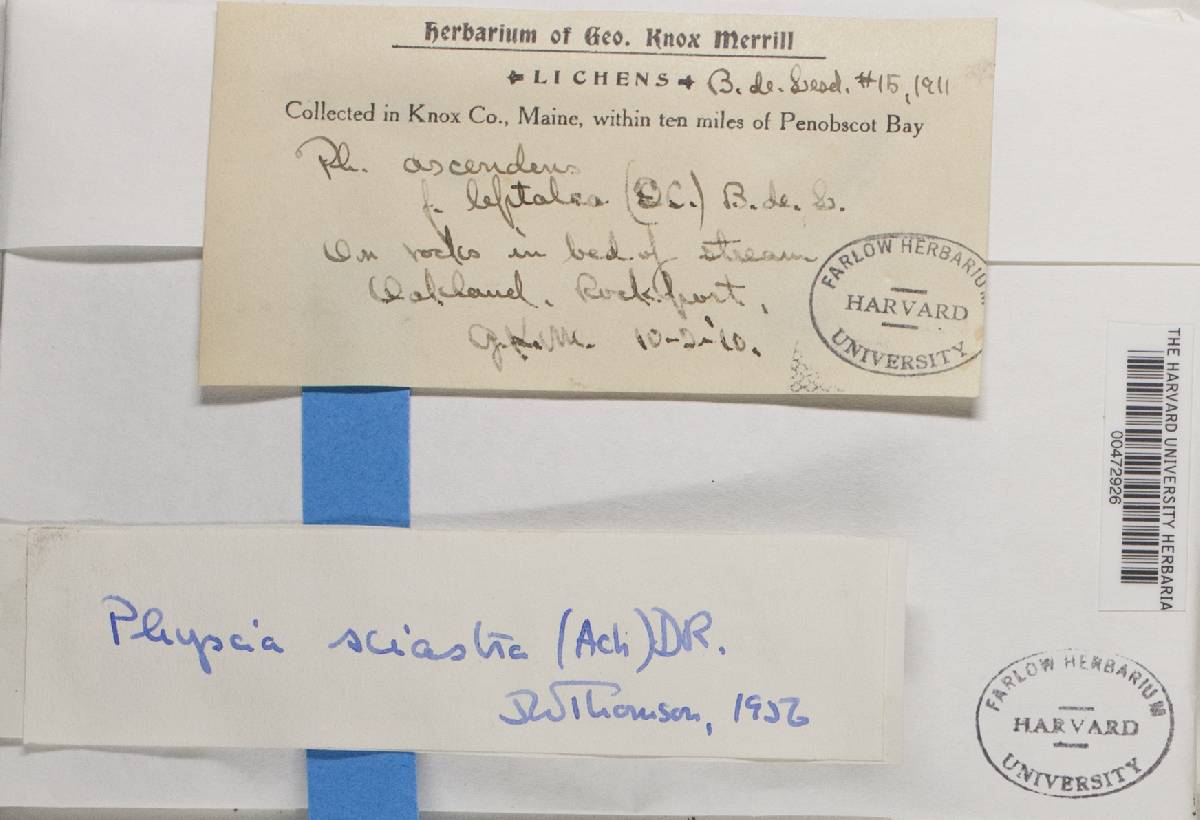 Herbarium of Geo. Knox Merrill
LICHENS B. de. Lesd. #15, 1911
Collected in Knox Co., Maine, within ten miles of Penobscot Bay
Ph. ascendens
f. leptalea (DC.) B. de. L.
On rocks in bed of stream
Oakland, Rockport,
G.K.M. 10-2-'10.
FARLOW HERBARIUM
HARVARD
UNIVERSITY
THE HARVARD UNIVERSITY HERBARIA
00472926
Physcia sciastra (Ach) DR.
JWThomson, 1956
FARLOW HERBARIUM
HARVARD
UNIVERSITY